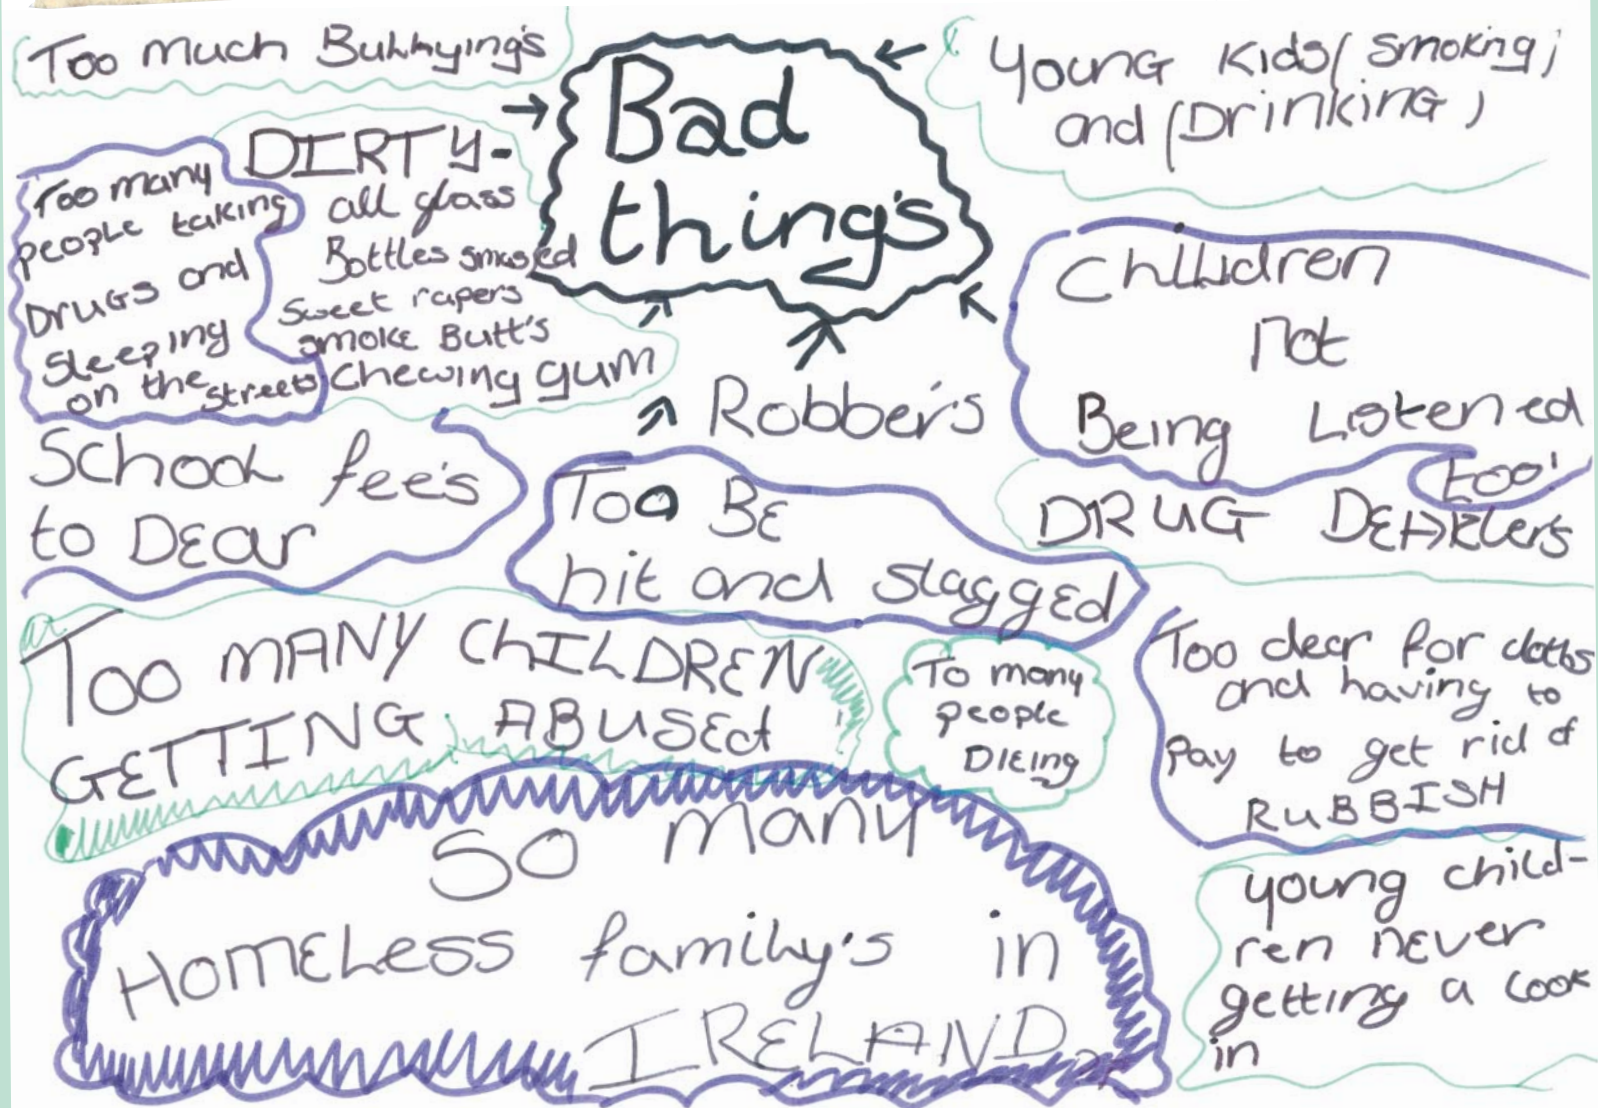 Too much Bullying's
Bad
thing's
Young Kids (smoking)
and (Drinking)
Too many
people taking
Drugs and
sleeping
on the streets
DIRTY-
all glass
Bottles smased
Sweet rapers
smoke Butt's
chewing gum
Robber's
Children
not
Being Listened
too!
School fee's
to Dear
Too BE
hit and slagged
DRUG DEALErs
Too MANY ChILDREN
GETTING ABUSEd
To many
people
DIEing
Too dear for cloths
and having to
Pay to get rid of
RUBBISH
So many
HOMELess family's in
IRELAND
young child-
ren never
getting a look
in